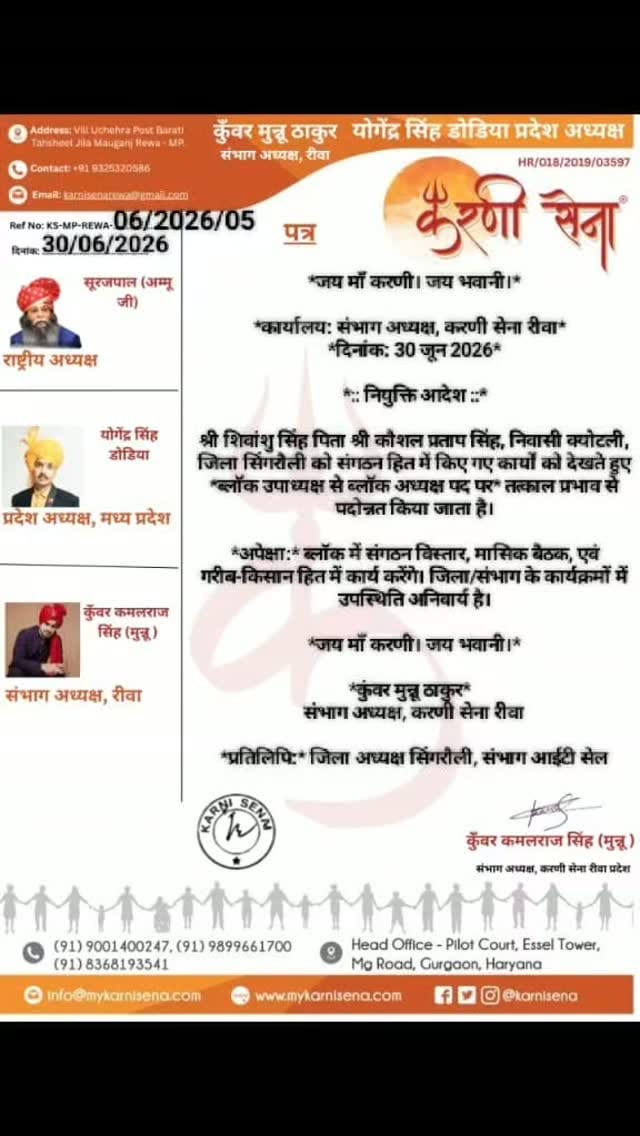 Address: Vill Uchehra Post Barati
Tahsheel Jila Mauganj Rewa - MP.
Contact: +91 9325320586
Email: karnisenarewa@gmail.com
कुँवर मुन्नू ठाकुर
संभाग अध्यक्ष, रीवा
योगेंद्र सिंह डोडिया प्रदेश अध्यक्ष
HR/018/2019/03597
करणी सेना®
Ref No: KS-MP-REWA-06/2026/05
दिनांक: 30/06/2026
पत्र
सूरजपाल (अम्मू
जी)
राष्ट्रीय अध्यक्ष
योगेंद्र सिंह
डोडिया
प्रदेश अध्यक्ष, मध्य प्रदेश
कुँवर कमलराज
सिंह (मुन्नू )
संभाग अध्यक्ष, रीवा
*जय माँ करणी। जय भवानी।*
*कार्यालय: संभाग अध्यक्ष, करणी सेना रीवा*
*दिनांक: 30 जून 2026*
*:: नियुक्ति आदेश ::*
श्री शिवांशु सिंह पिता श्री कौशल प्रताप सिंह, निवासी क्योटली,
जिला सिंगरौली को संगठन हित में किए गए कार्यों को देखते हुए
*ब्लॉक उपाध्यक्ष से ब्लॉक अध्यक्ष पद पर* तत्काल प्रभाव से
पदोन्नत किया जाता है।
*अपेक्षा:* ब्लॉक में संगठन विस्तार, मासिक बैठक, एवं
गरीब-किसान हित में कार्य करेंगे। जिला/संभाग के कार्यक्रमों में
उपस्थिति अनिवार्य है।
*जय माँ करणी। जय भवानी।*
*कुंवर मुन्नू ठाकुर*
संभाग अध्यक्ष, करणी सेना रीवा
*प्रतिलिपि:* जिला अध्यक्ष सिंगरौली, संभाग आईटी सेल
KARNI SENA
कुँवर कमलराज सिंह (मुन्नू )
संभाग अध्यक्ष, करणी सेना रीवा प्रदेश
(91) 9001400247, (91) 9899661700
(91) 8368193541
Head Office - Pilot Court, Essel Tower,
Mg Road, Gurgaon, Haryana
info@mykarnisena.com
www.mykarnisena.com
@karnisena